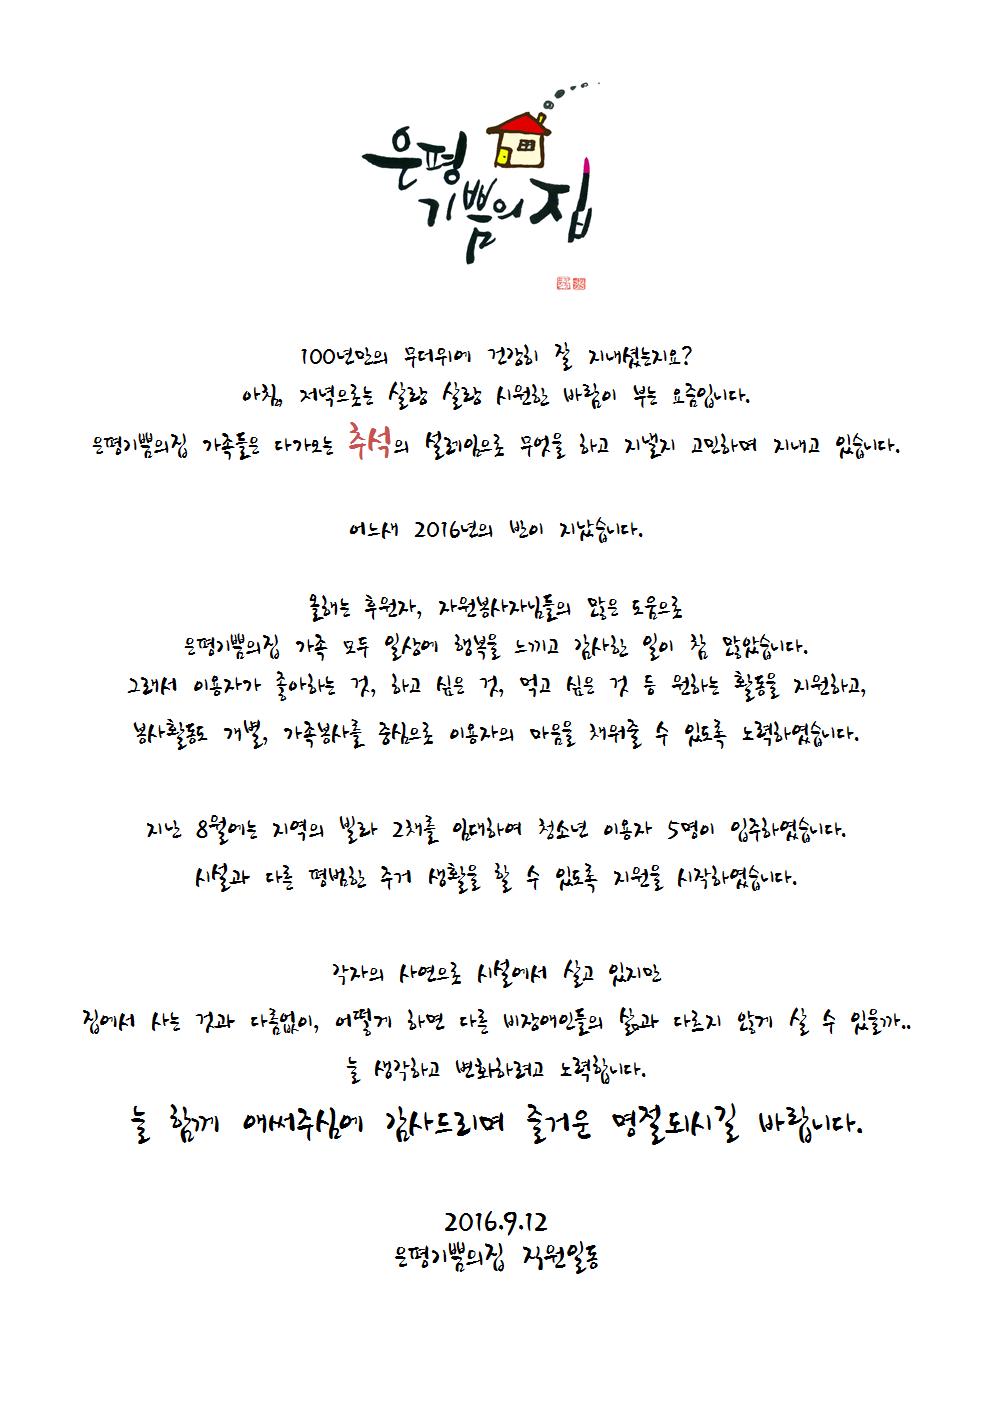 은평
기쁨의 집
100년만의 무더위에 건강히 잘 지내셨는지요?
아침, 저녁으로는 살랑 살랑 시원한 바람이 부는 요즘입니다.
은평기쁨의집 가족들은 다가오는 추석의 설레임으로 무엇을 하고 지낼지 고민하며 지내고 있습니다.
어느새 2016년의 반이 지났습니다.
올해는 후원자, 자원봉사자님들의 많은 도움으로
은평기쁨의집 가족 모두 일상에 행복을 느끼고 감사한 일이 참 많았습니다.
그래서 이용자가 좋아하는 것, 하고 싶은 것, 먹고 싶은 것 등 원하는 활동을 지원하고,
봉사활동도 개별, 가족봉사를 중심으로 이용자의 마음을 채워줄 수 있도록 노력하였습니다.
지난 8월에는 지역의 빌라 2채를 임대하여 청소년 이용자 5명이 입주하였습니다.
시설과 다른 평범한 주거 생활을 할 수 있도록 지원을 시작하였습니다.
각자의 사연으로 시설에서 살고 있지만
집에서 사는 것과 다름없이, 어떻게 하면 다른 비장애인들의 삶과 다르지 않게 살 수 있을까..
늘 생각하고 변화하려고 노력합니다.
늘 함께 애써주심에 감사드리며 즐거운 명절되시길 바랍니다.
2016.9.12
은평기쁨의집 직원일동